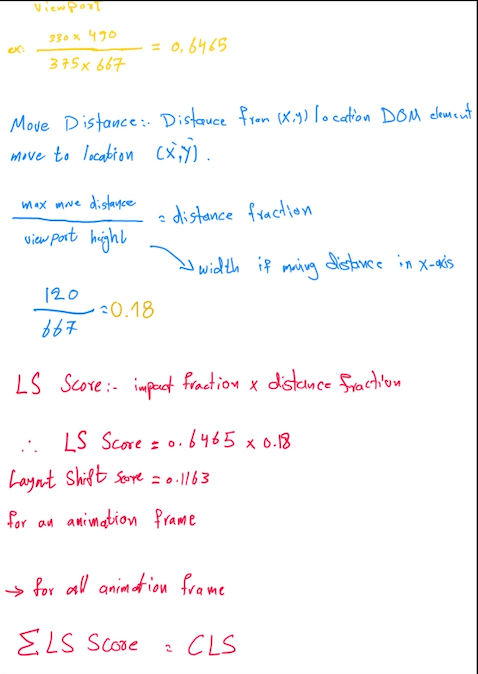 Viewport
ex: 330 x 490 / 375 x 667 = 0.6465
Move Distance:- Distance from (x,y) location DOM element
move to location (x',y').
max move distance / viewport height = distance fraction
width if moving distance in x-axis
120 / 667 = 0.18
LS Score:- impact fraction x distance fraction
∴ LS Score = 0.6465 x 0.18
Layout Shift Score = 0.1163
for an animation frame
→ for all animation frame
ΣLS Score = CLS